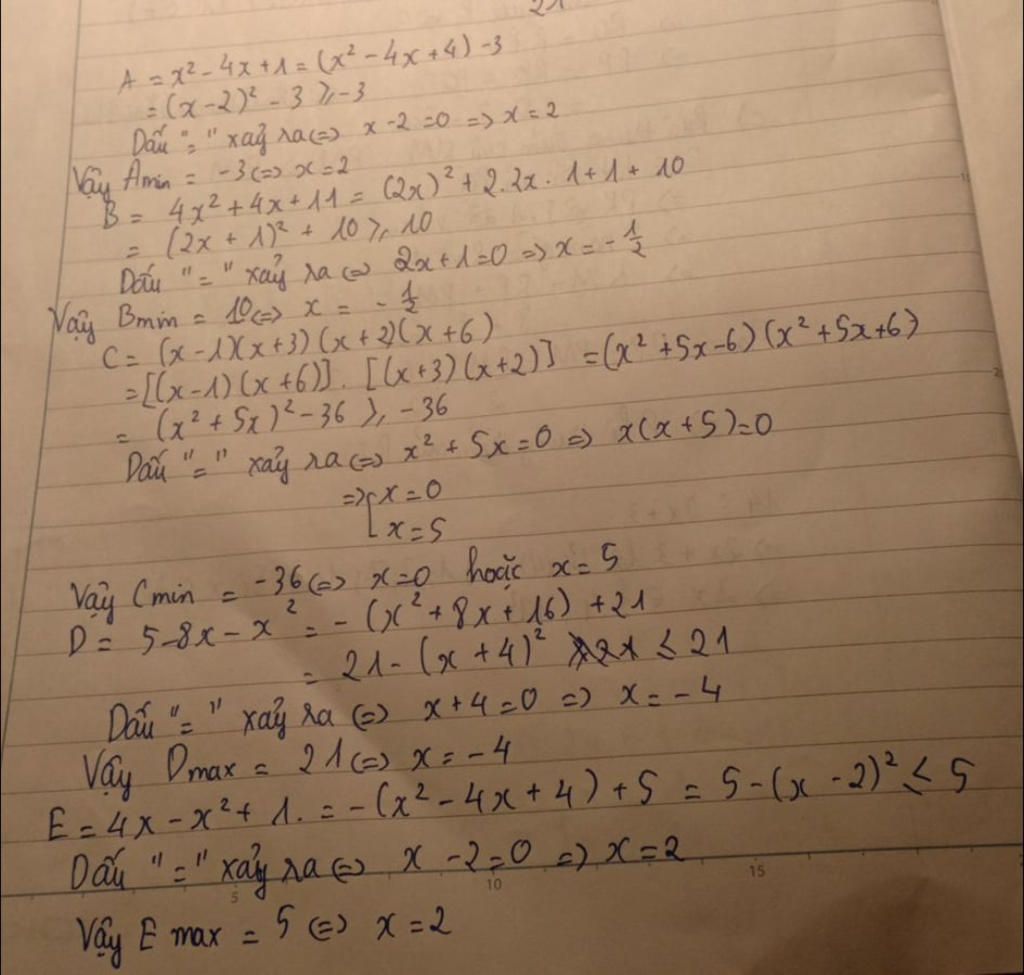 21
A = x² - 4x + 1 = (x² - 4x + 4) - 3
= (x - 2)² - 3 ≥ -3
Dấu "=" xảy ra <=> x - 2 = 0 => x = 2
Vậy Amin = -3 <=> x = 2
B = 4x² + 4x + 11 = (2x)² + 2.2x.1 + 1 + 10
= (2x + 1)² + 10 ≥ 10
Dấu "=" xảy ra <=> 2x + 1 = 0 => x = -1/2
Vậy Bmin = 10 <=> x = -1/2
C = (x - 1)(x + 3)(x + 2)(x + 6)
= [(x - 1)(x + 6)] . [(x + 3)(x + 2)] = (x² + 5x - 6)(x² + 5x + 6)
= (x² + 5x)² - 36 ≥ -36
Dấu "=" xảy ra <=> x² + 5x = 0 => x(x + 5) = 0
=> [ x = 0
x = 5
Vậy Cmin = -36 <=> x = 0 hoặc x = 5
D = 5 - 8x - x² = -(x² + 8x + 16) + 21
= 21 - (x + 4)² ≤ 21
Dấu "=" xảy ra <=> x + 4 = 0 => x = -4
Vậy Dmax = 21 <=> x = -4
E = 4x - x² + 1. = -(x² - 4x + 4) + 5 = 5 - (x - 2)² ≤ 5
Dấu "=" xảy ra <=> x - 2 = 0 => x = 2
5 10 15
Vậy E max = 5 <=> x = 2